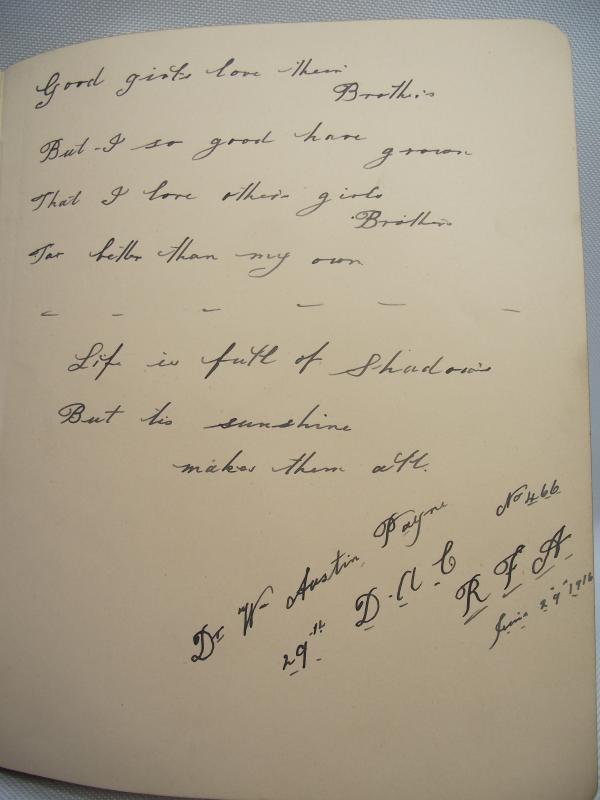 Good girls love their
Brothers
But I so good have
grown
That I love others girls
Brothers
Far better than my own
Life is full of Shadows
But tis sunshine
makes them all.
Dr Wm Austin Payne No 466
29th D.A.C
R F A
June 29th 1916